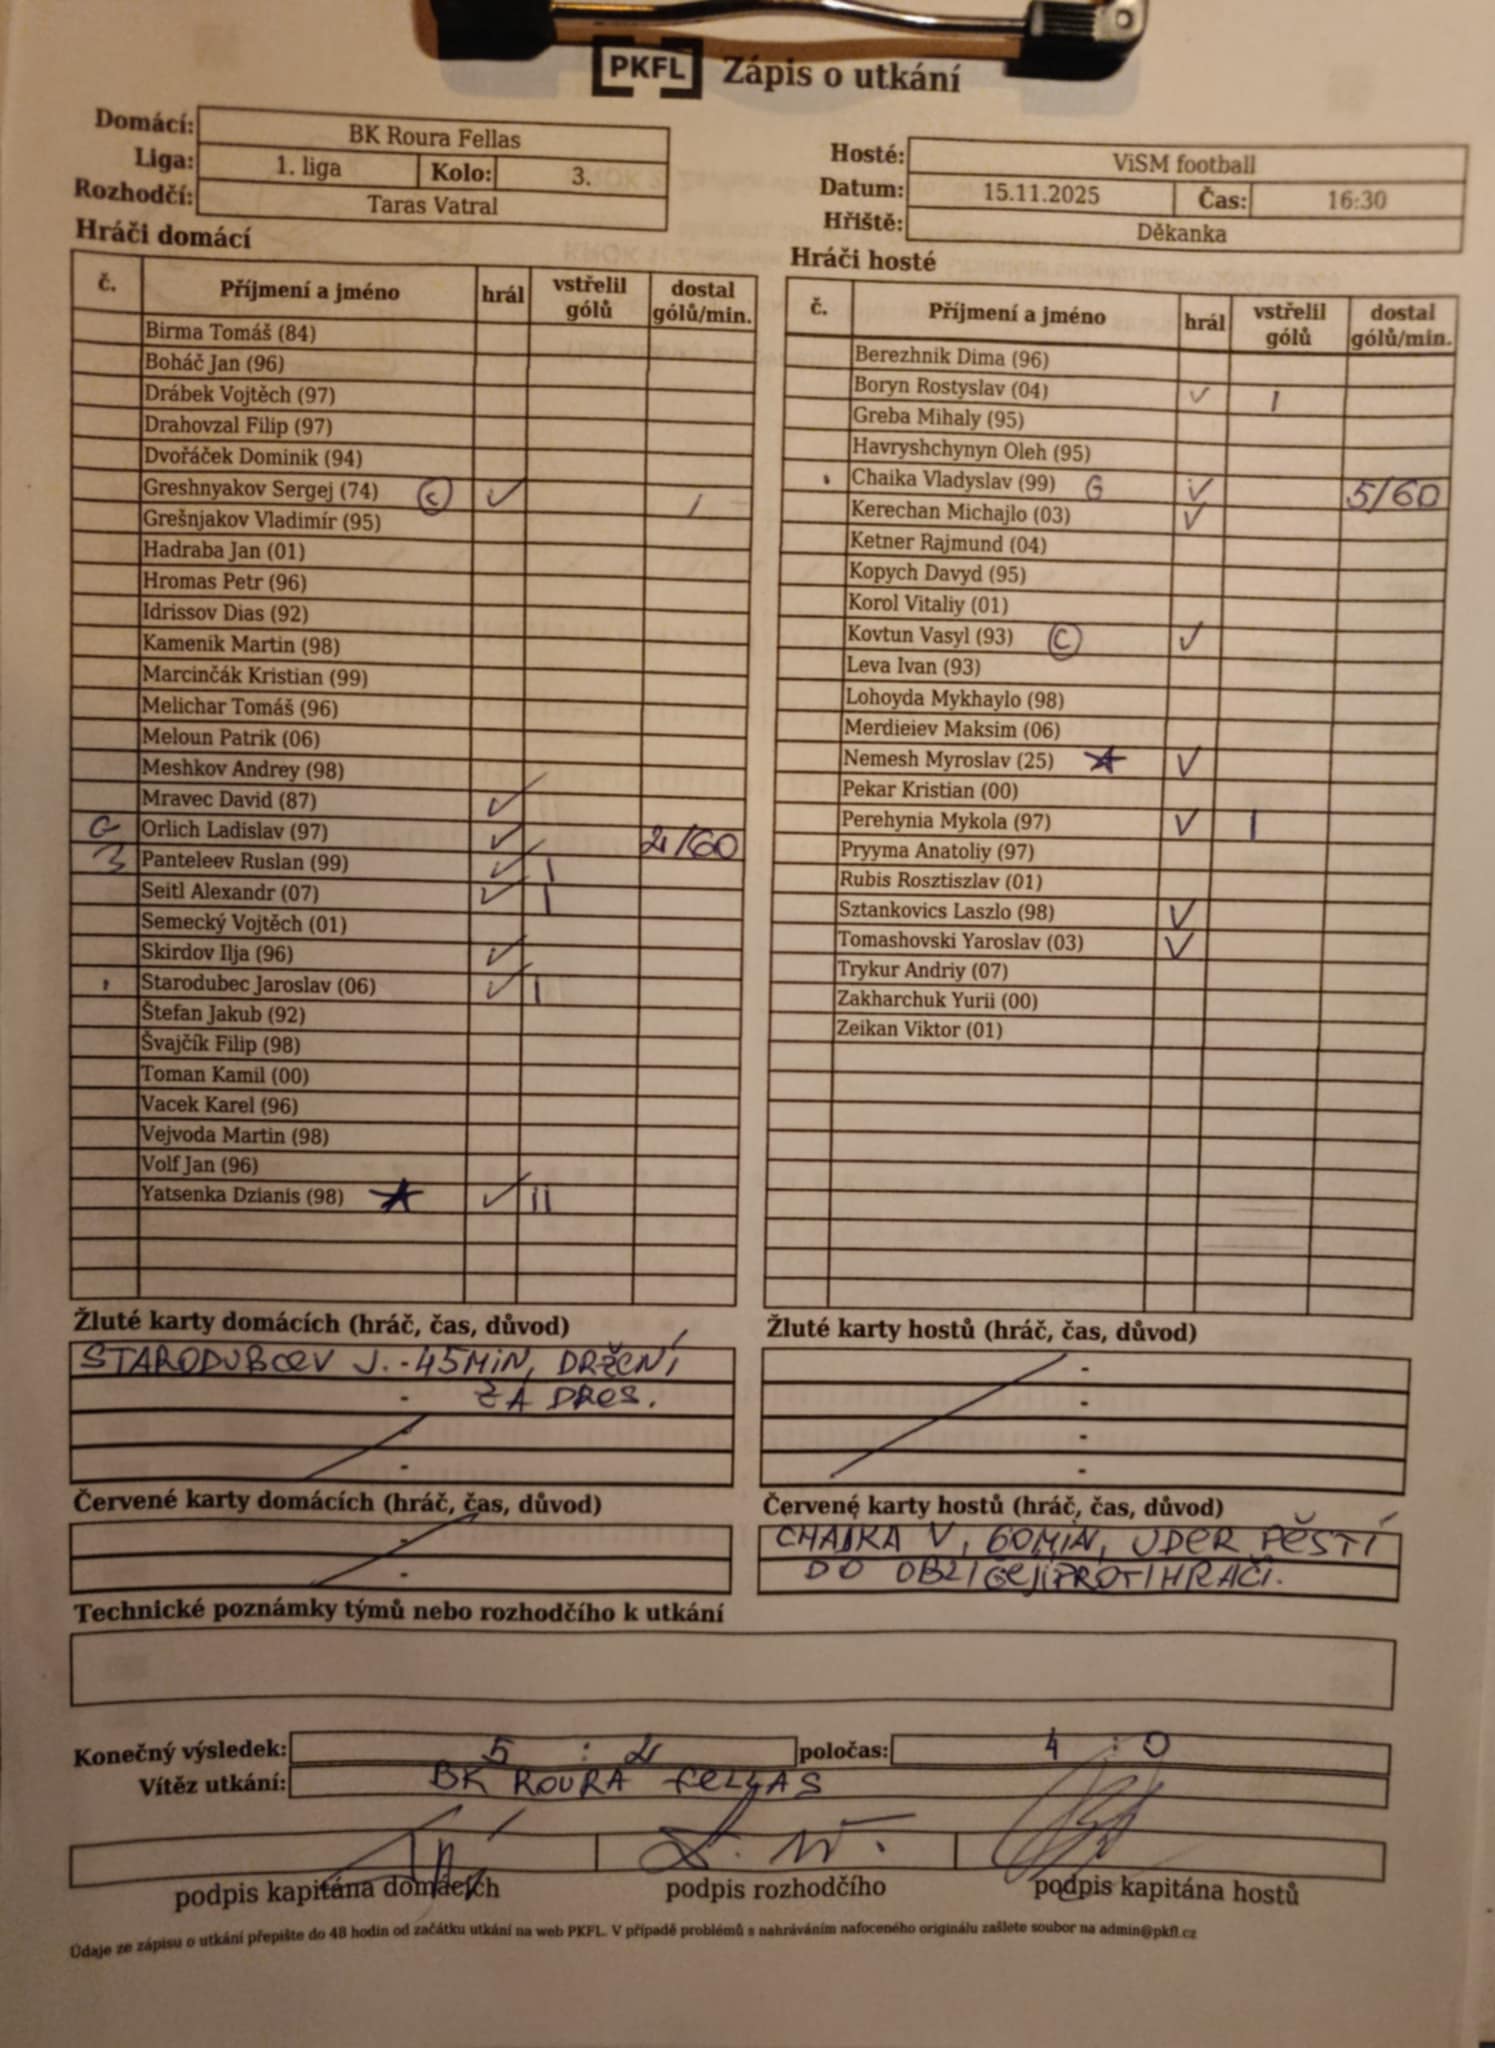 PKFL Zápis o utkání
Domácí: BK Roura Fellas
Liga: 1. liga Kolo: 3.
Rozhodčí: Taras Vatral
Hosté: ViSM football
Datum: 15.11.2025 Čas: 16:30
Hřiště: Děkanka
Hráči domácí
č. Příjmení a jméno hrál vstřelil gólů dostal gólů/min.
Birma Tomáš (84)
Boháč Jan (96)
Drábek Vojtěch (97)
Drahovzal Filip (97)
Dvořáček Dominik (94)
Greshnyakov Sergej (74) C ✓
Grešnjakov Vladimír (95)
Hadraba Jan (01)
Hromas Petr (96)
Idrissov Dias (92)
Kamenik Martin (98)
Marcinčák Kristian (99)
Melichar Tomáš (96)
Meloun Patrik (06)
Meshkov Andrey (98)
Mravec David (87) ✓
G Orlich Ladislav (97) ✓ 2/60
Panteleev Ruslan (99) ✓ I
Seitl Alexandr (07) ✓ I
Semecký Vojtěch (01)
Skirdov Ilja (96) ✓
Starodubec Jaroslav (06) ✓ I
Štefan Jakub (92)
Švajčík Filip (98)
Toman Kamil (00)
Vacek Karel (96)
Vejvoda Martin (98)
Volf Jan (96)
Yatsenka Dzianis (98) ★ ✓ II
Hráči hosté
č. Příjmení a jméno hrál vstřelil gólů dostal gólů/min.
Berezhnik Dima (96)
Boryn Rostyslav (04) ✓ I
Greba Mihaly (95)
Havryshchynyn Oleh (95)
Chaika Vladyslav (99) G ✓ 5/60
Kerechan Michajlo (03) ✓
Ketner Rajmund (04)
Kopych Davyd (95)
Korol Vitaliy (01)
Kovtun Vasyl (93) C ✓
Leva Ivan (93)
Lohoyda Mykhaylo (98)
Merdieiev Maksim (06)
Nemesh Myroslav (25) ★ ✓
Pekar Kristian (00)
Perehynia Mykola (97) ✓ I
Pryyma Anatoliy (97)
Rubis Rosztiszlav (01)
Sztankovics Laszlo (98) ✓
Tomashovski Yaroslav (03) ✓
Trykur Andriy (07)
Zakharchuk Yurii (00)
Zeikan Viktor (01)
Žluté karty domácích (hráč, čas, důvod)
STARODUBCEV J. - 45 MIN, DRŽENÍ
ZA DRES.
Žluté karty hostů (hráč, čas, důvod)
Červené karty domácích (hráč, čas, důvod)
Červené karty hostů (hráč, čas, důvod)
CHAIKA V, 60 MIN, UDER PĚSTÍ
DO OBLIGEJI PROTIHRAČI.
Technické poznámky týmů nebo rozhodčího k utkání
Konečný výsledek: 5 : 2 poločas: 4 : 0
Vítěz utkání: BK ROURA FELLAS
podpis kapitána domácích podpis rozhodčího podpis kapitána hostů
Údaje ze zápisu o utkání přepište do 48 hodin od začátku utkání na web PKFL. V případě problémů s nahráváním nafoceného originálu zašlete soubor na admin@pkfl.cz